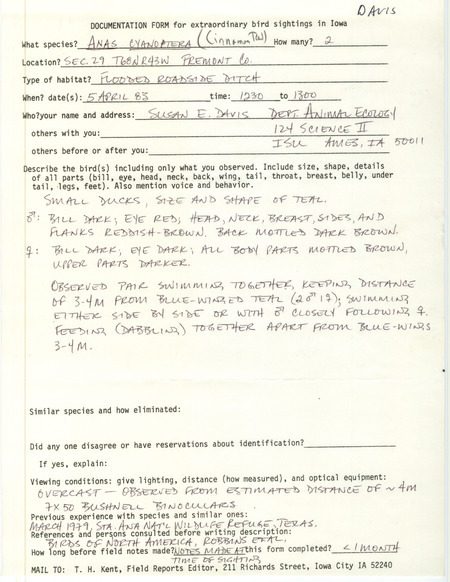 DAVIS
DOCUMENTATION FORM for extraordinary bird sightings in Iowa
What species? ANAS CYANOPTERA (Cinnamon Teal) How many? 2
Location? SEC. 29 T68N R43W FREMONT CO.
Type of habitat? FLOODED ROADSIDE DITCH
When? date(s): 5 APRIL 83 time: 1230 to 1300
Who? your name and address: SUSAN E. DAVIS DEPT. ANIMAL ECOLOGY
others with you: 124 SCIENCE II
others before or after you: ISU AMES, IA 50011
Describe the bird(s) including only what you observed. Include size, shape, details
of all parts (bill, eye, head, neck, back, wing, tail, throat, breast, belly, under
tail, legs, feet). Also mention voice and behavior.
SMALL DUCKS, SIZE AND SHAPE OF TEAL.
♂: BILL DARK; EYE RED; HEAD, NECK, BREAST, SIDES, AND
FLANKS REDDISH-BROWN. BACK MOTTLED DARK BROWN.
♀: BILL DARK; EYE DARK; ALL BODY PARTS MOTTLED BROWN,
UPPER PARTS DARKER.
OBSERVED PAIR SWIMMING TOGETHER, KEEPING DISTANCE
OF 3-4M FROM BLUE-WINGED TEAL (2♂ 1♀); SWIMMING
EITHER SIDE BY SIDE OR WITH ♂ CLOSELY FOLLOWING ♀.
FEEDING (DABBLING) TOGETHER APART FROM BLUE-WINGS
3-4M.
Similar species and how eliminated:
Did any one disagree or have reservations about identification?
If yes, explain:
Viewing conditions: give lighting, distance (how measured), and optical equipment:
OVERCAST — OBSERVED FROM ESTIMATED DISTANCE OF ~4M
7X50 BUSHNELL BINOCULARS.
Previous experience with species and similar ones:
MARCH 1979, STA. ANA NAT'L WILDLIFE REFUGE, TEXAS.
References and persons consulted before writing description:
BIRDS OF NORTH AMERICA, ROBBINS ET AL.
How long before field notes made? NOTES MADE AT this form completed? <1 MONTH
TIME OF SIGHTING
MAIL TO: T. H. Kent, Field Reports Editor, 211 Richards Street, Iowa City IA 52240